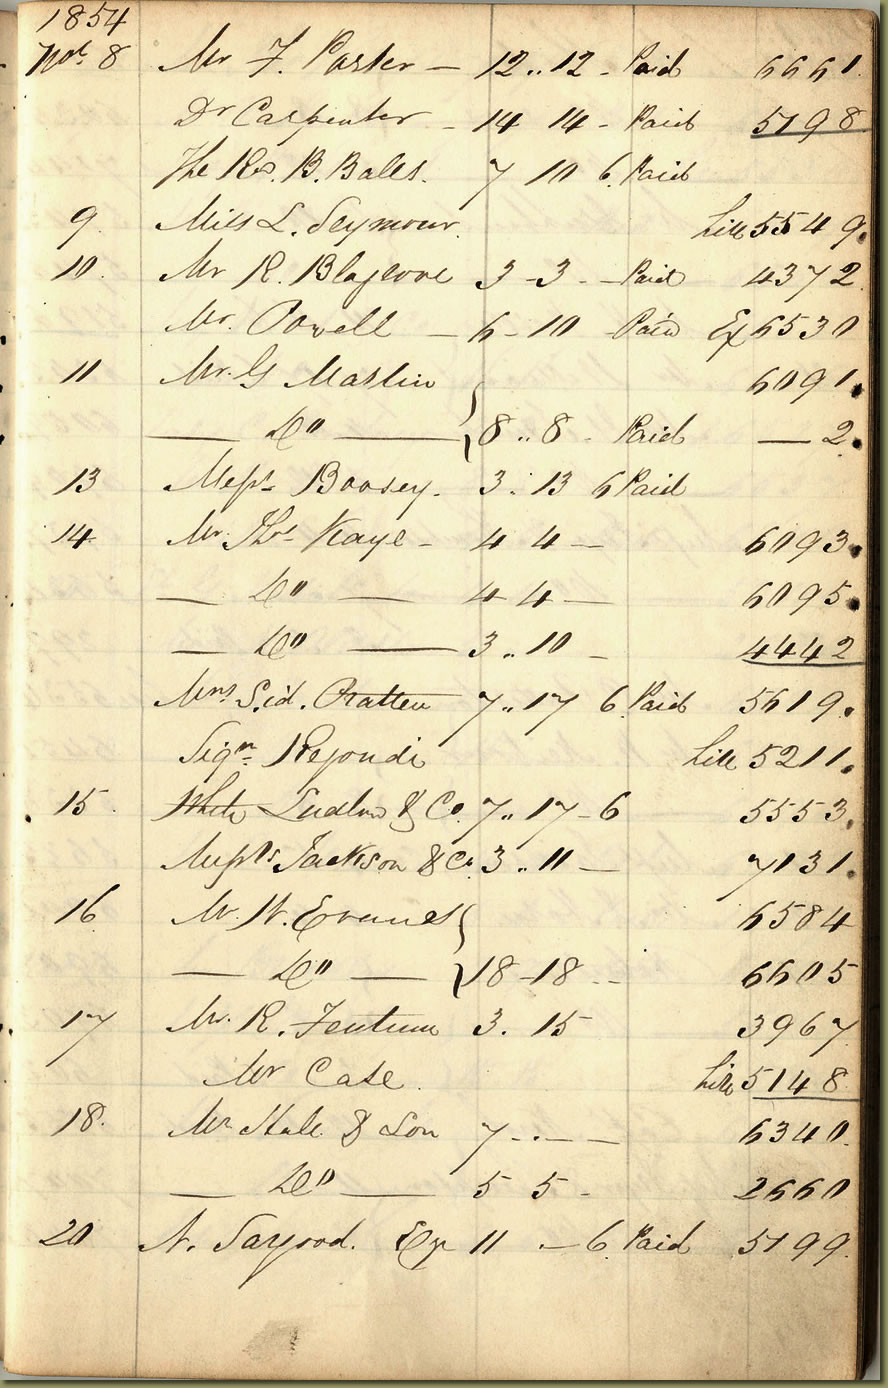 1854
Novr 8 Mr F. Parker — 12 .. 12 - Paid 6661.
Dr Carpenter - 14 14 - Paid 5198
The Rev. B. Bales. 7 10 6. Paid
9. Miss L. Seymour. 5549.
10. Mr R. Blagrove 3 - 3 - - Paid 4372
Mr. Powell — 6 - 10 - Paid Ex 6530
11 Mr. G Martin 6091.
— Do — 8 .. 8 - Paid — 2.
13 Messrs Boosey. 3 . 13 6 Paid
14 Mr. Thos Kaye - 4 4 — 6093.
— Do — 4 4 — 6095.
— Do — 3 .. 10 - 4442
Mrs Sid. Pratten 7 .. 17 6 Paid 5619.
Sigr Regondi 5211.
15 White Ludlow & Co. 7 .. 17 - 6 5553.
Messrs Jackson & Co. 3 .. 11 — 7131.
16 Mr W. Evanes 6584
— Do — 18 - 18 - - 6605
17 Mr. R. Fentum 3. 15 3967
Mr Case. 5148
18. Mr Hale & Son 7 - . — — 6340.
— Do — 5 5 - 2660
20 N. Sargood. Ex 11 . — 6. Paid 5199.